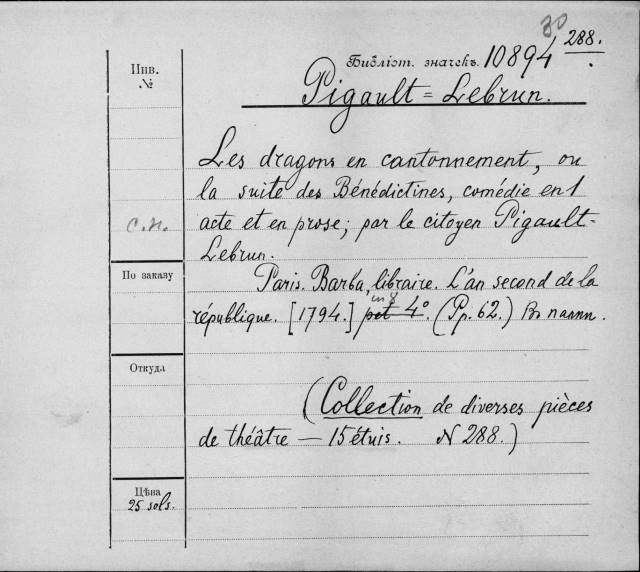 30
288.
Библіот. значекъ 10894
Инв.
№
Pigault=Lebrun.
Les dragons en cantonnement, ou
la suite des Bénédictines, comédie en 1
acte et en prose; par le citoyen Pigault-
Lebrun.
С.Н.
По заказу
Paris. Barba, libraire. L'an second de la
in 8
république. [1794.] pet 4°. (Pp. 62.) Въ папк.
Откуда
(Collection de diverses pièces
de théâtre — 15 étuis. N 288.)
Цѣна
25 sols.